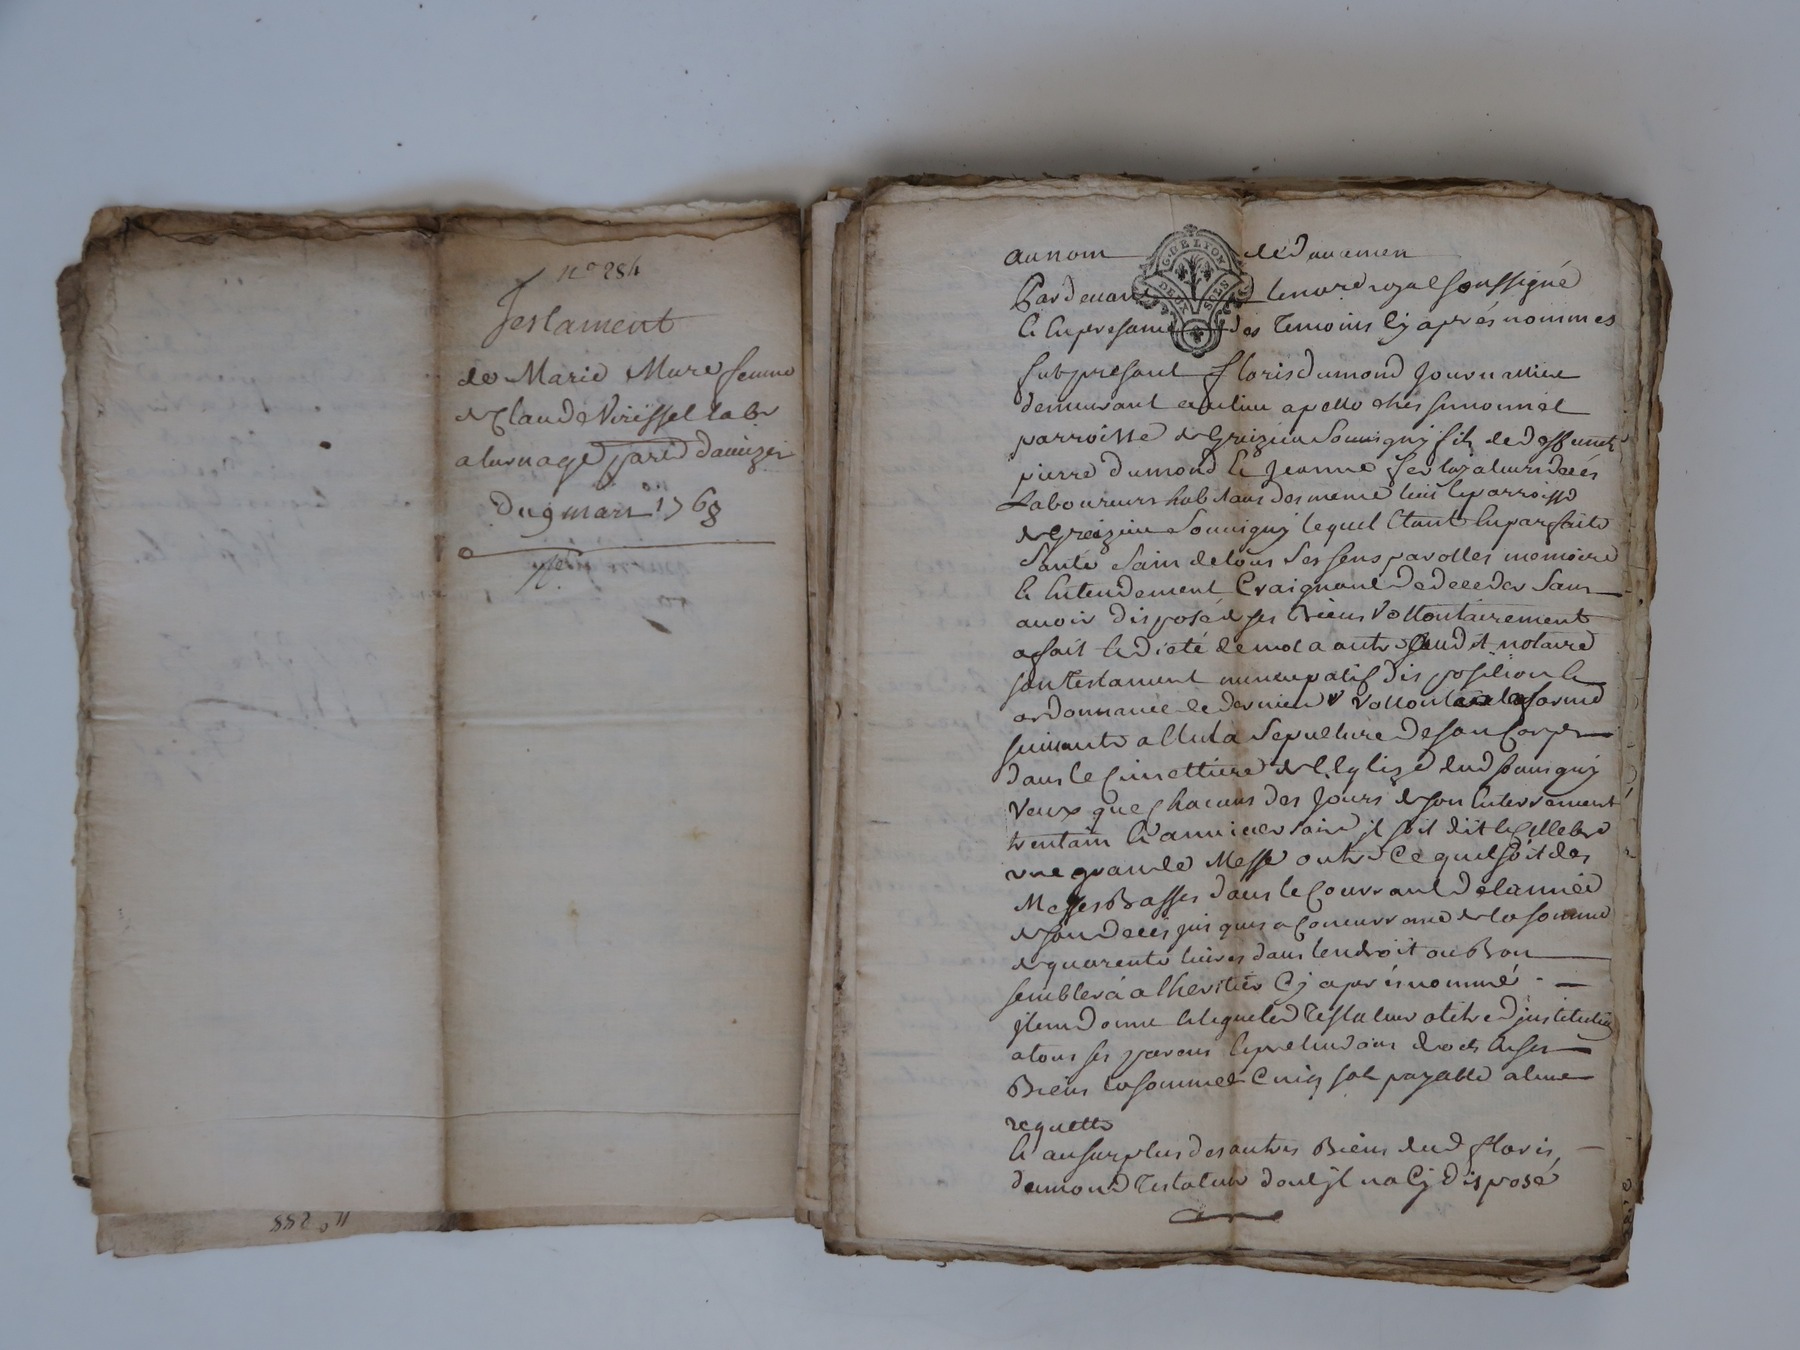 n° 284
Testament
de Marie Mure femme
de Claude Virissel labr
a lavnage parr d'amizer
du 9 mars 1768
n° 288
au nom de d. amen
G. DE LYON
DEUX SOLS
Par devant le nore royal soussigné
et en presance des temoins cy aprés nommes
fut presant floris dumond journallier
demeurant au lieu apellé ches simonnet
parroisse de greizieu Souvigny fils de deffunts
pierre dumond et jeanne
Laboureurs habitans des meme lieu et parroisse
de greizieu Souvigny lequel étant en parfaite
santé sain de tous ses sens parolles memoire
et entendement Craignant de deceder sans
avoir disposé de ses Biens vollontairement
a fait et dicté de mot a autre aud it notaire
son testament nuncupatif disposition et
ordonnance de derniere vollonté en la forme
suivante a élu la sepulture de son Corps
dans le Cimettiere de l'Eglize dud souvigny
veux que chacuns des jours de son enterrement
trentain et anniversaire il soit dit et Cellebré
une grande Messe outre Ce quel soit des
Messes Basses dans le Courrant de lannée
de son deces jusques a Concurrance de la somme
de quarente livres dans lendroit ou Bon
semblera a lheritier Cy aprés nommé
jtem donne et legue led testateur a titre djnstitution
a tous ses parans et pretendans droits en ses
Biens la somme de Cinq sols payable a leur
requette
et au surplus des autres Biens dud floris
dumond testateur dont jl na Cy disposé